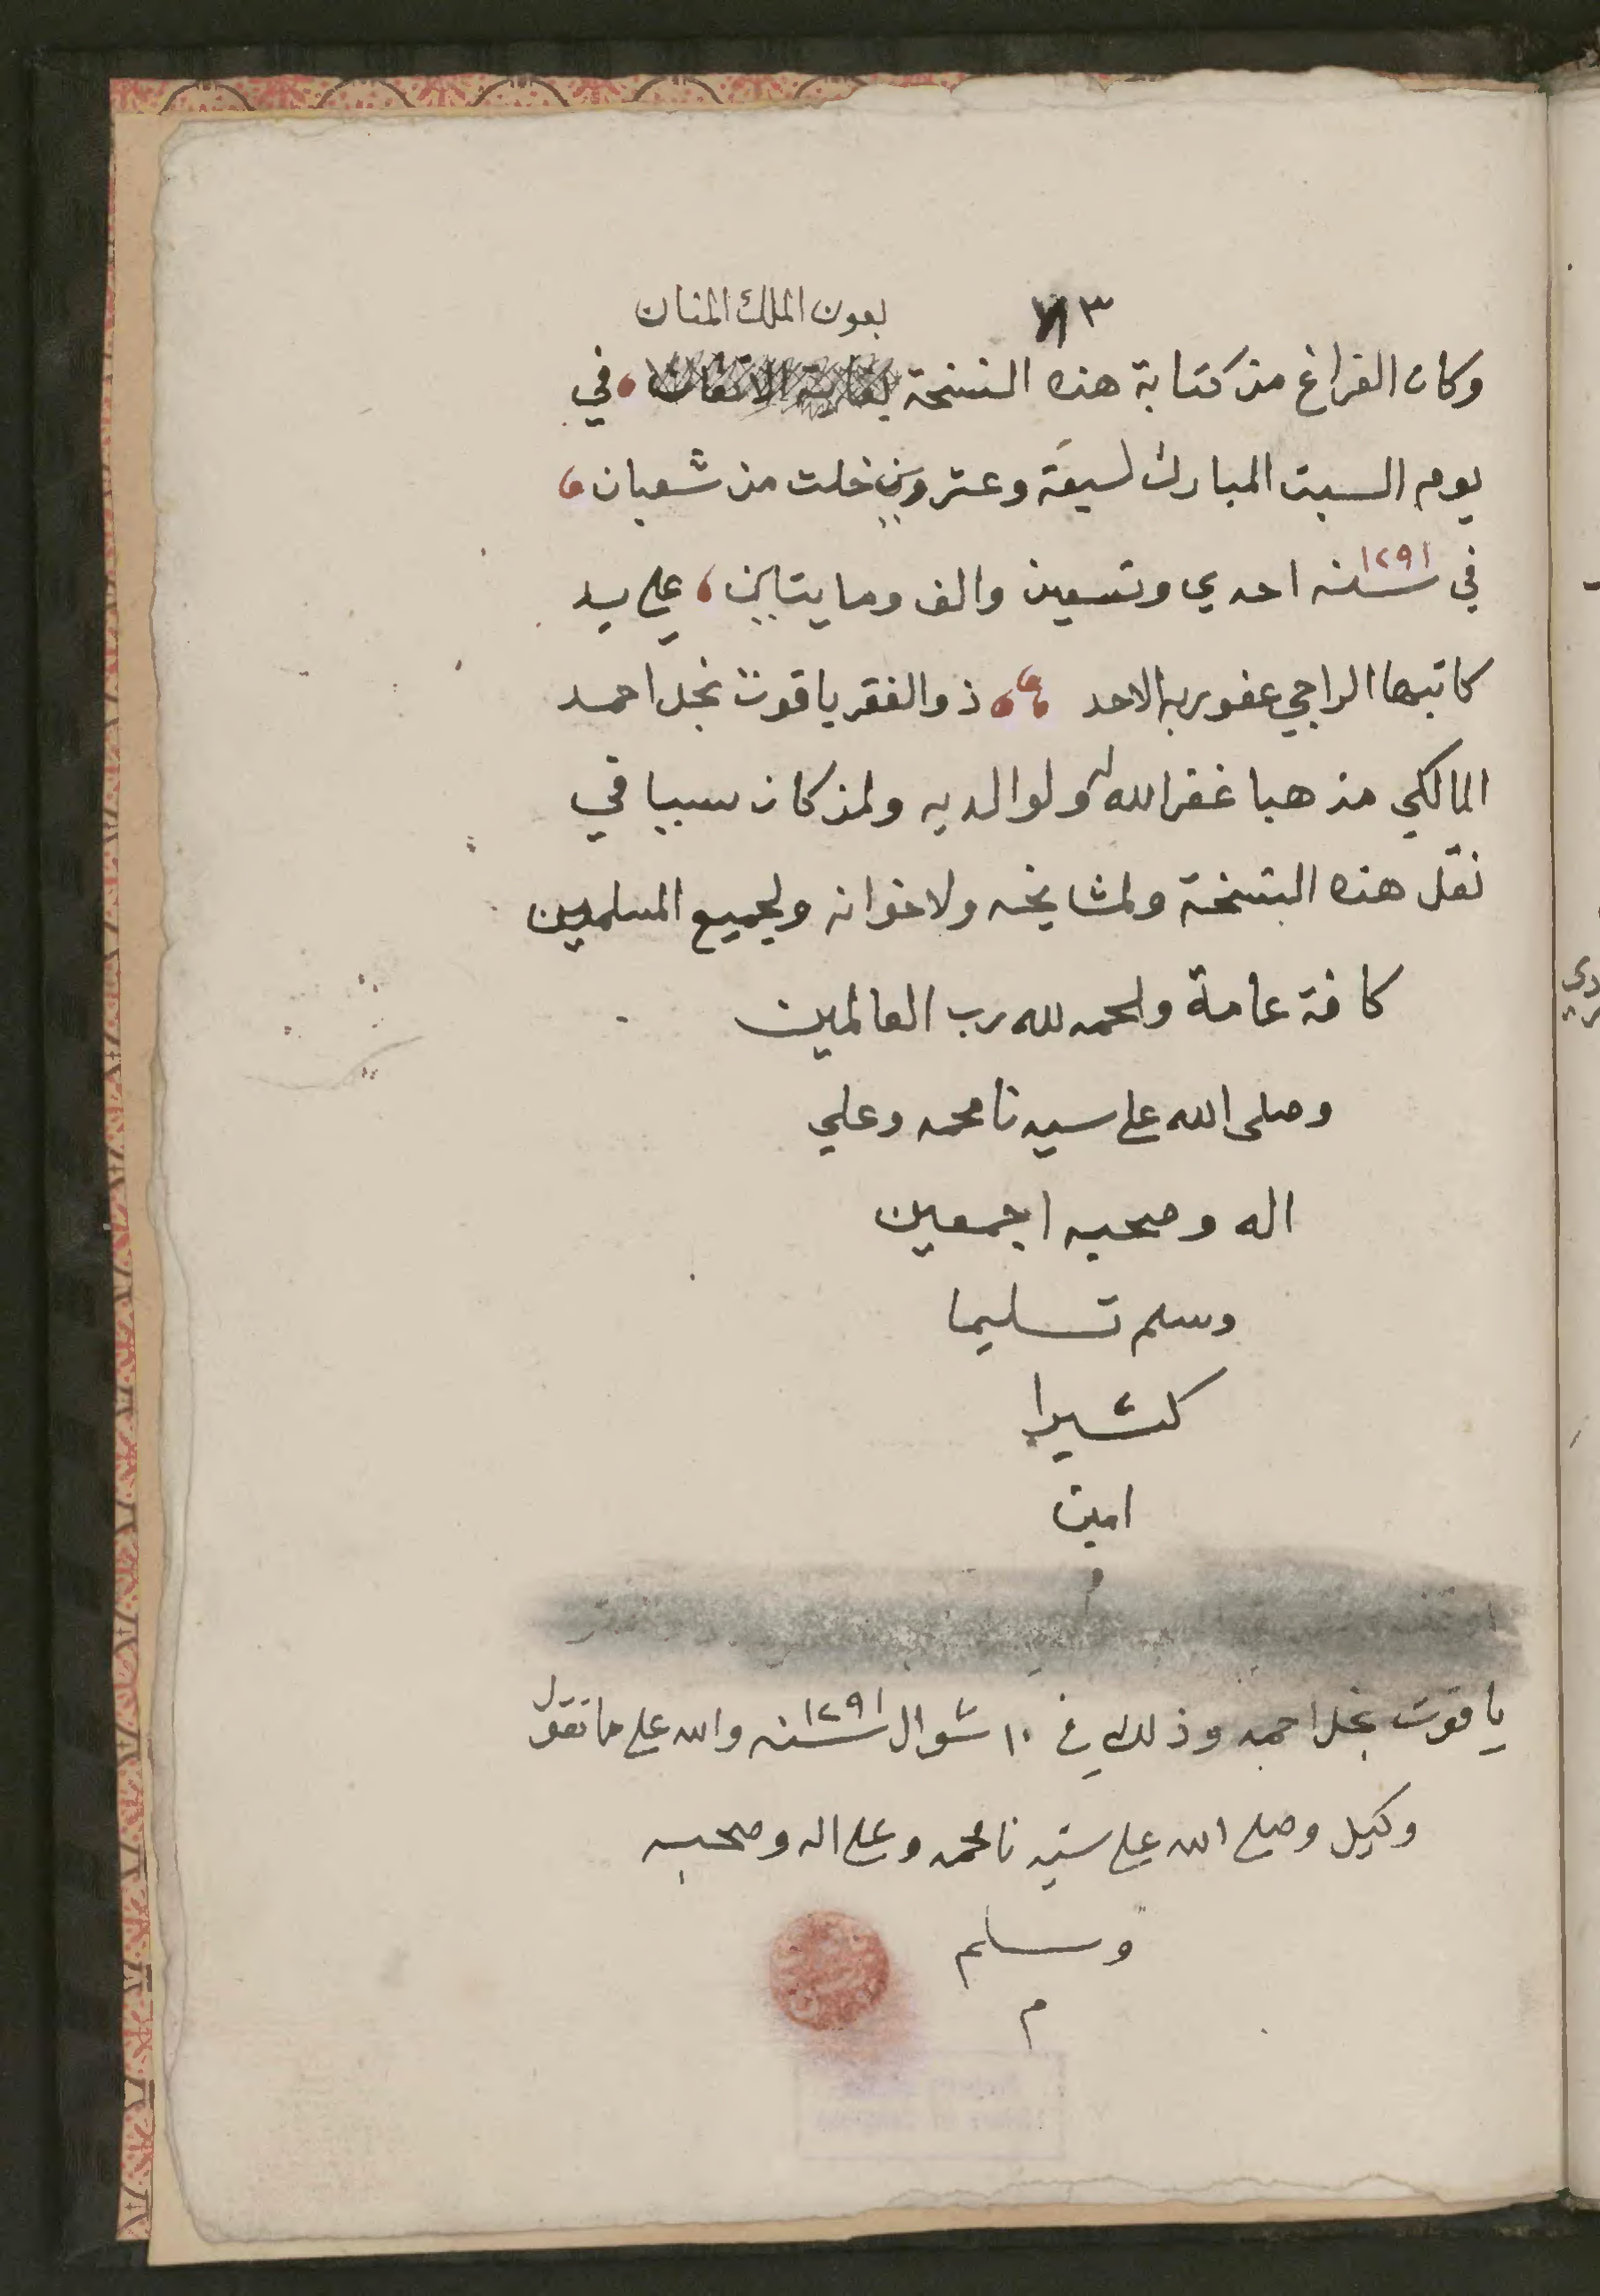 ٧٣
بعون الملك المنان
وكان الفراغ من كتابة هذه النسخة بغاية الاتقان، في
يوم السبت المبارك لسبعة وعشرين خلت من شعبان،
في سنه ١٢٩١ احدي وتسعين والف ومايتاين، علي يد
كاتبها الراجي عفو ربه الاحد ذو الفقر ياقوت نجل احمد
المالكي مذهبا غفر الله له ولوالديه ولمن كان سببا في
نقل هذه النسخة ولمشايخه ولاخوانه ولجميع المسلمين
كافة عامة والحمد لله رب العالمين
وصلى الله على سيدنا محمد وعلي
اله وصحبه اجمعين
وسلم تسليما
كثيرا
امين
ياقوت نجل احمد وذلك في ١٠ شوال سنه ١٢٩١ والله علي ما نقول
وكيل وصلي الله علي سيدنا محمد وعلي اله وصحبه
وسلم
م